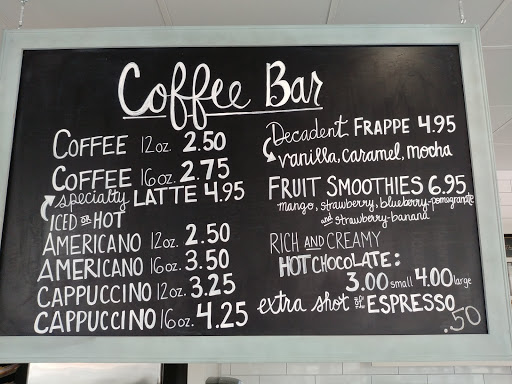 Coffee Bar
COFFEE 12oz. 2.50
COFFEE 16oz. 2.75
specialty LATTE 4.95
ICED OR HOT
AMERICANO 12oz. 2.50
AMERICANO 16oz. 3.50
CAPPUCCINO 12oz. 3.25
CAPPUCCINO 16oz. 4.25
Decadent FRAPPE 4.95
vanilla, caramel, mocha
FRUIT SMOOTHIES 6.95
mango, strawberry, blueberry-pomegranate
and strawberry-banana
RICH AND CREAMY
HOT CHOCOLATE:
3.00 small 4.00 large
extra shot OF ESPRESSO
.50